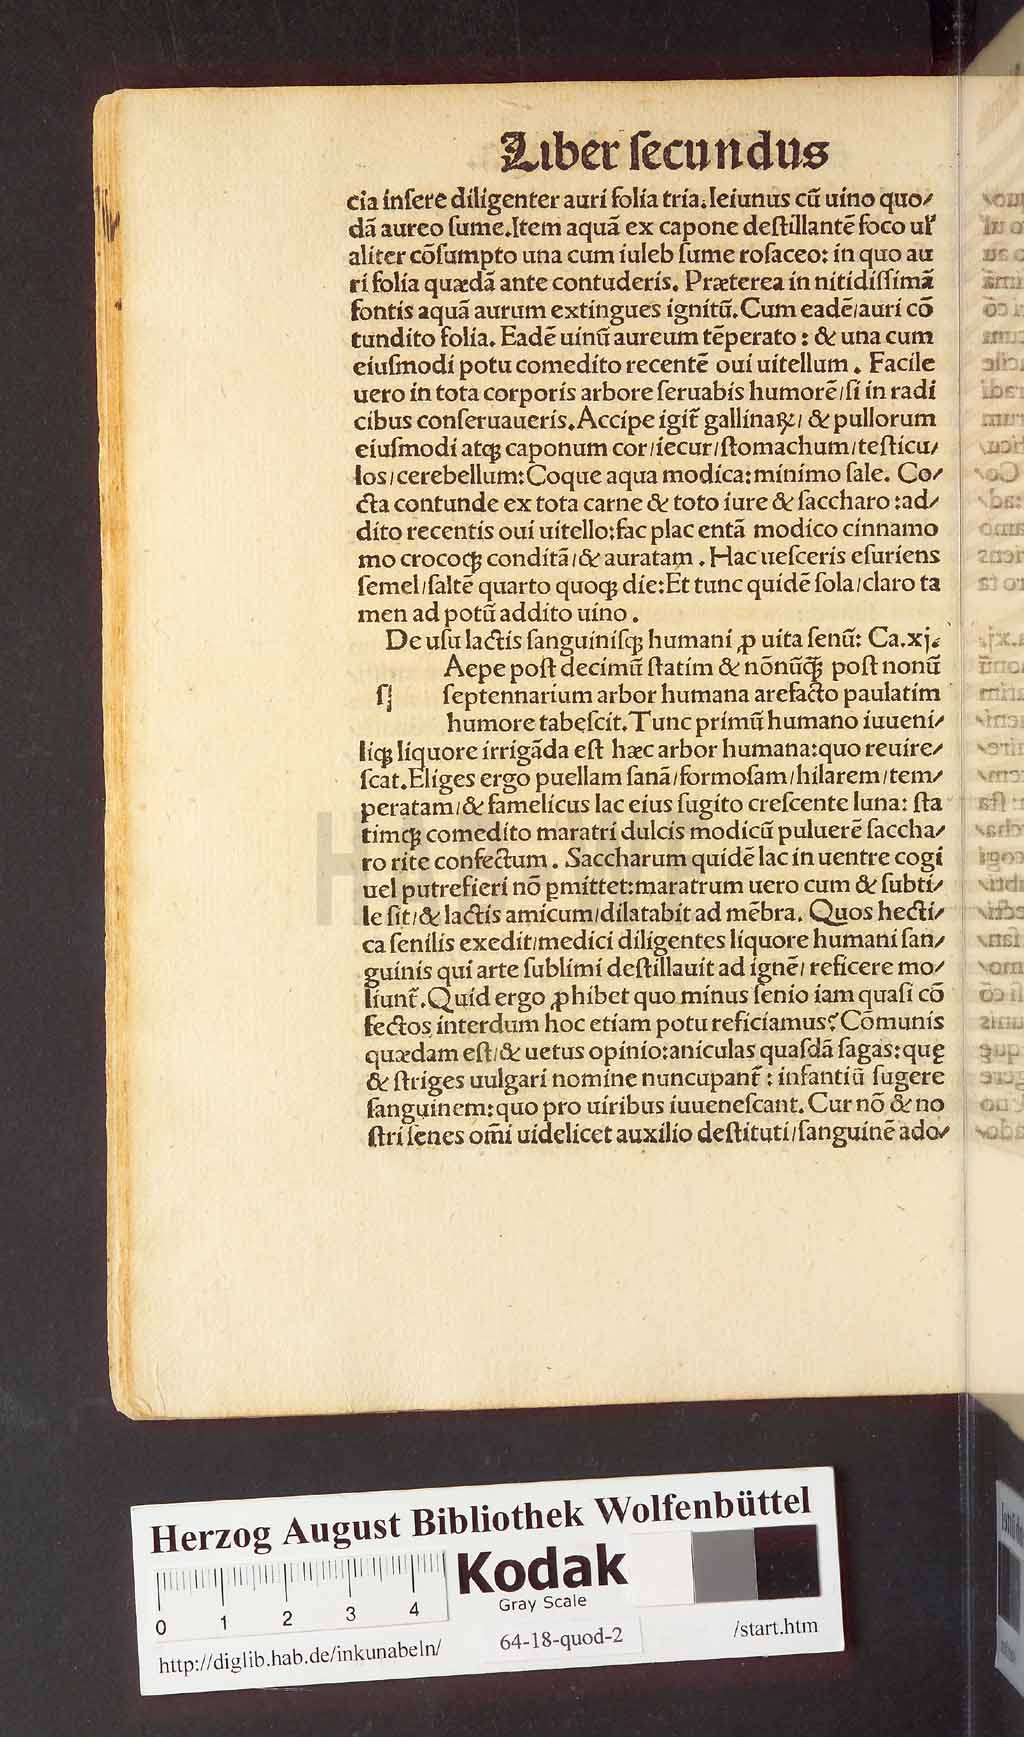 Liber ſecundus
cia inſere diligenter auri folia tria. Ieiunus cū uino quo⸗
dā aureo ſume. Item aquā ex capone deſtillantē foco ul̛
aliter cōſumpto una cum iuleb ſume roſaceo: in quo au
ri folia quædā ante contuderis. Præterea in nitidiſſimā
fontis aquā aurum extingues ignitū. Cum eadē/auri cō
tundito folia. Eadē uinū aureum tēperato: & una cum
eiuſmodi potu comedito recentē oui uitellum. Facile
uero in tota corporis arbore ſeruabis humorē/ſi in radi
cibus conſeruaueris. Accipe igit᷑ gallinaꝝ/ & pullorum
eiuſmodi atqꝫ caponum cor/iecur/ſtomachum/teſticu⸗
los/cerebellum: Coque aqua modica: minimo ſale. Co⸗
cta contunde ex tota carne & toto iure & ſaccharo: ad⸗
dito recentis oui uitello: fac plac entā modico cinnamo
mo crocoqꝫ conditā/& auratam. Hac ueſceris eſuriens
ſemel/ſaltē quarto quoqꝫ die: Et tunc quidē ſola/claro ta
men ad potū addito uino.
De uſu lactis ſanguiniſqꝫ humani ꝓ uita ſenū: Ca.xj.
Aepe poſt decimū ſtatim & nōnūqꝫ̄ poſt nonū
ſ ſeptennarium arbor humana arefacto paulatim
humore tabeſcit. Tunc primū humano iuueni⸗
liqꝫ liquore irrigāda eſt hæc arbor humana: quo reuire⸗
ſcat. Eliges ergo puellam ſanā/formoſam/hilarem/tem⸗
peratam/& famelicus lac eius ſugito creſcente luna: ſta
timqꝫ comedito maratri dulcis modicū puluerē ſaccha⸗
ro rite confectum. Saccharum quidē lac in uentre cogi
uel putrefieri nō ꝑmittet: maratrum uero cum & ſubti⸗
le ſit/& lactis amicum/dilatabit ad mēbra. Quos hecti⸗
ca ſenilis exedit/medici diligentes liquore humani ſan⸗
guinis qui arte ſublimi deſtillauit ad ignē/ reficere mo⸗
liunt᷑. Quid ergo ꝓhibet quo minus ſenio iam quaſi cō
fectos interdum hoc etiam potu reficiamus? Cōmunis
quædam eſt/& uetus opinio: aniculas quaſdā ſagas: quę
& ſtriges uulgari nomine nuncupant᷑: infantiū ſugere
ſanguinem: quo pro uiribus iuueneſcant. Cur nō & no
ſtri ſenes om̄i uidelicet auxilio deſtituti/ſanguinē ado⸗
Herzog August Bibliothek Wolfenbüttel
Kodak
Gray Scale
0 1 2 3 4
http://diglib.hab.de/inkunabeln/
64-18-quod-2
/start.htm